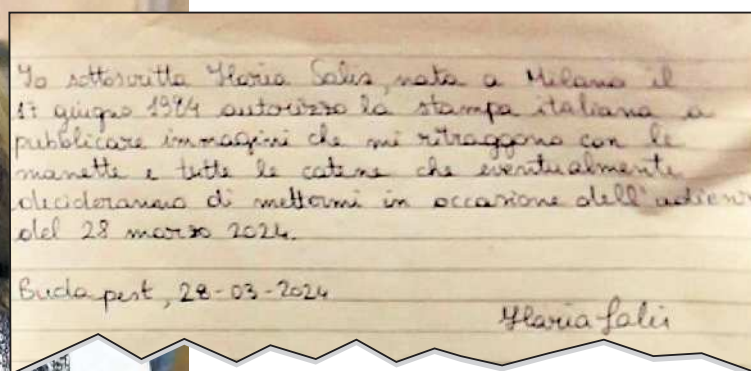 Io sottoscritta Ilaria Salis, nata a Milano il
17 giugno 1984 autorizzo la stampa italiana a
pubblicare immagini che mi ritraggono con le
manette e tutte le catene che eventualmente
decideranno di mettermi in occasione dell'udienz
del 28 marzo 2024.
Budapest, 28-03-2024
Ilaria Salis